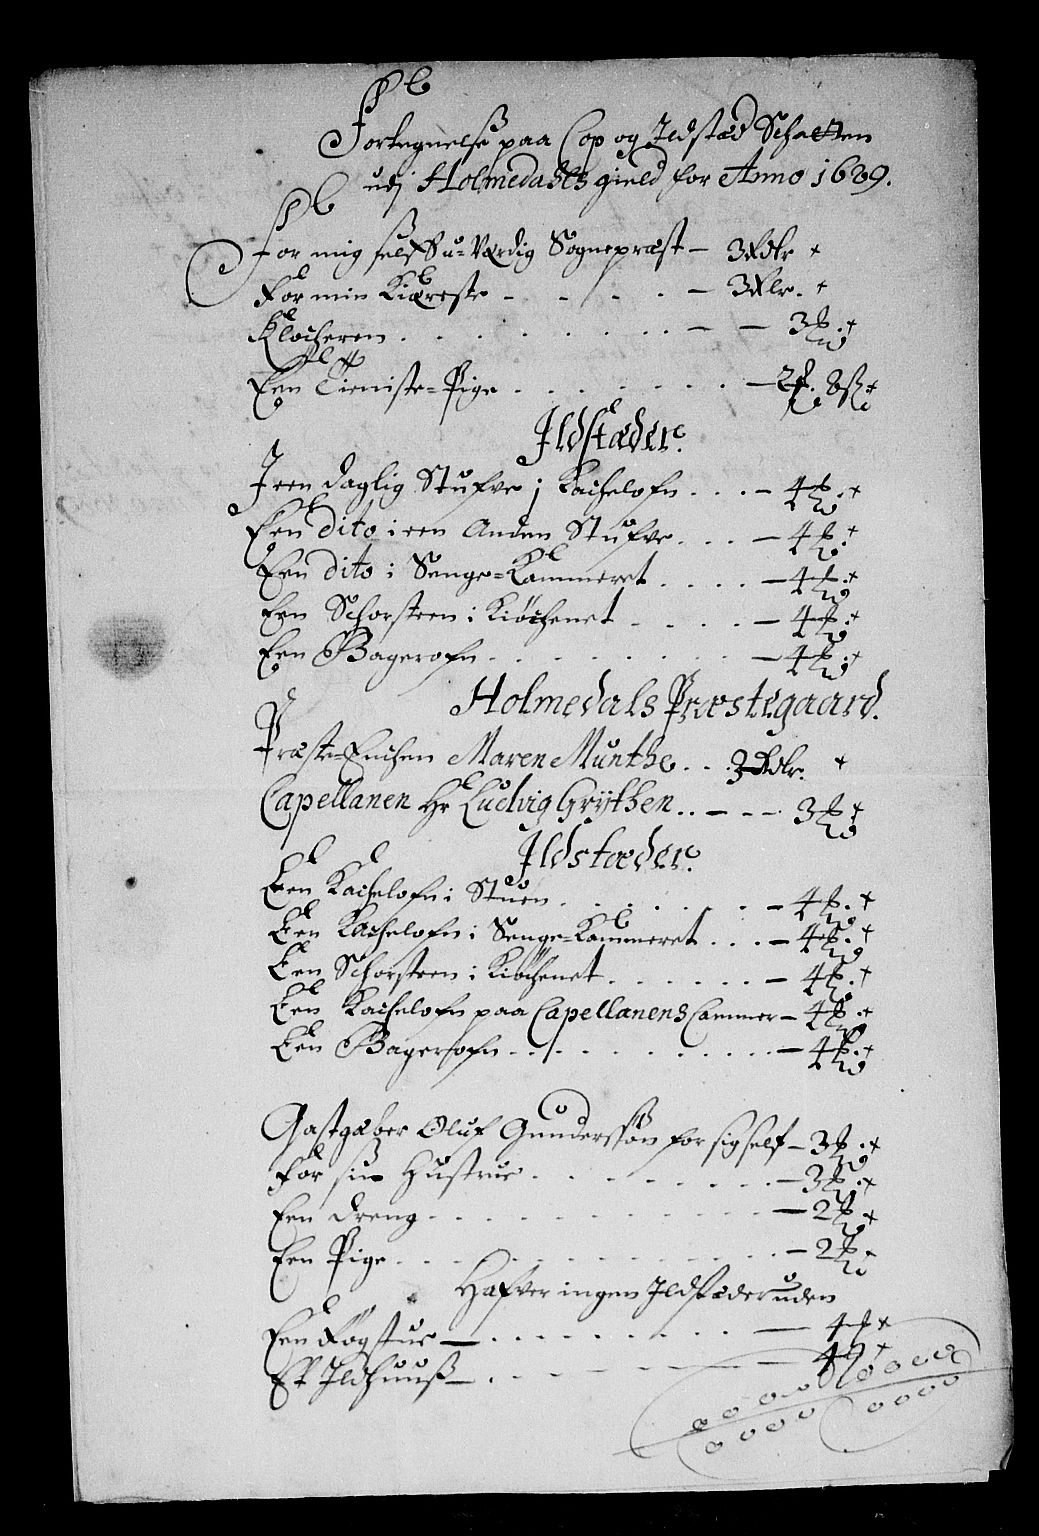 Fortegnelse paa Cop og Ildstæd Schatten
udj Holmedahls gield, for Anno 1689.
For mig self u-Værdig Sognepræst – 3 Rdlr
For min Kiæreste – 3 Rdlr.
Klocheren – 3 ℔.
Een Tieniste-Pige – 2 ℔. 8 ß
Ildstæder.
I een daglig Stufve j Kachelofn – 4 ℔.
Een dito i een Anden Stufve – 4 ℔.
Een dito i Senge-Kammeret – 4 ℔.
Een Schorsteen i Kiöchenet – 4 ℔.
Een Bagerofn – 4 ℔.
Holmedals Præstegaard.
Præste-Enchen Maren Munthe – Rdlr.
Capellanen Hr Ludvig Grÿthen – 3 ℔
Ildstæder.
Een Kachelofn i Stuen – 4 ℔.
Een Kachelofn i Senge-Kammeret – 4 ℔.
Een Schorsteen i Kiöchenet – 4 ℔.
Een Kachelofn paa Capellanens Cammer – 4 ℔.
Een Bagerofn – 4 ℔.
Gastgæber Oluf Gunderssön for sig self – 3 ℔.
For sin Hustrue – 3 ℔.
Een Dreng – 2 ℔
Een Pige – 2 ℔
Hafver ingen Ildstæder uden
Een Rögstue – 4 ℔
Et Ildhuuß – 4 ℔